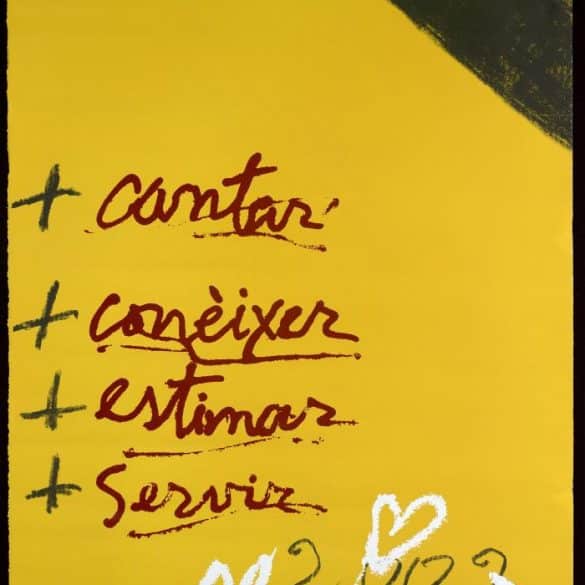 + cantar
+ conèixer
+ estimar
+ servir